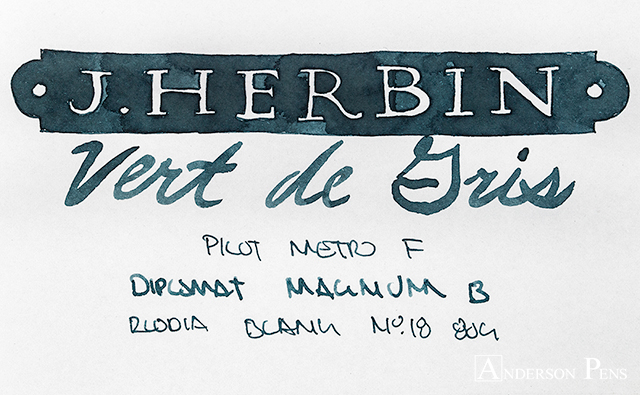 J. HERBIN
Vert de Gris
PILOT METRO F
DIPLOMAT MAGNUM B
RHODIA BLANK Nº.18 80G
ANDERSON PENS